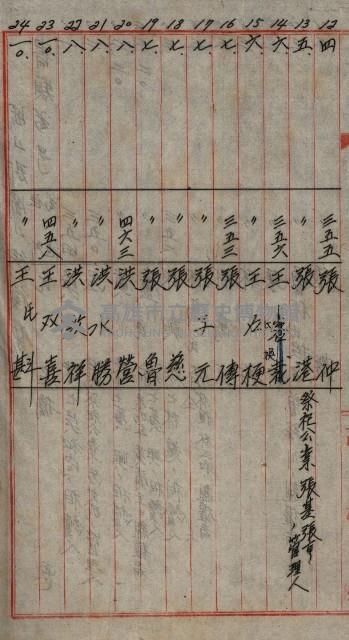 12 四. 三五五 張 仲
13 五. 〃 張 港 祭祀公業張基、張 管理人
14 六. 三五六 王
15 六. 〃 王 梗
16 七. 三五三 張 傳
17 七. 〃 張 元
18 七. 〃 張 慈
19 七. 〃 張 魯
20 八. 四六三 洪 營
21 八. 〃 洪 水 勝
22 八. 〃 洪 祥
23 一〇. 四五八 王 双 喜
24 一〇. 〃 王 氏
高雄市立歷史博物館